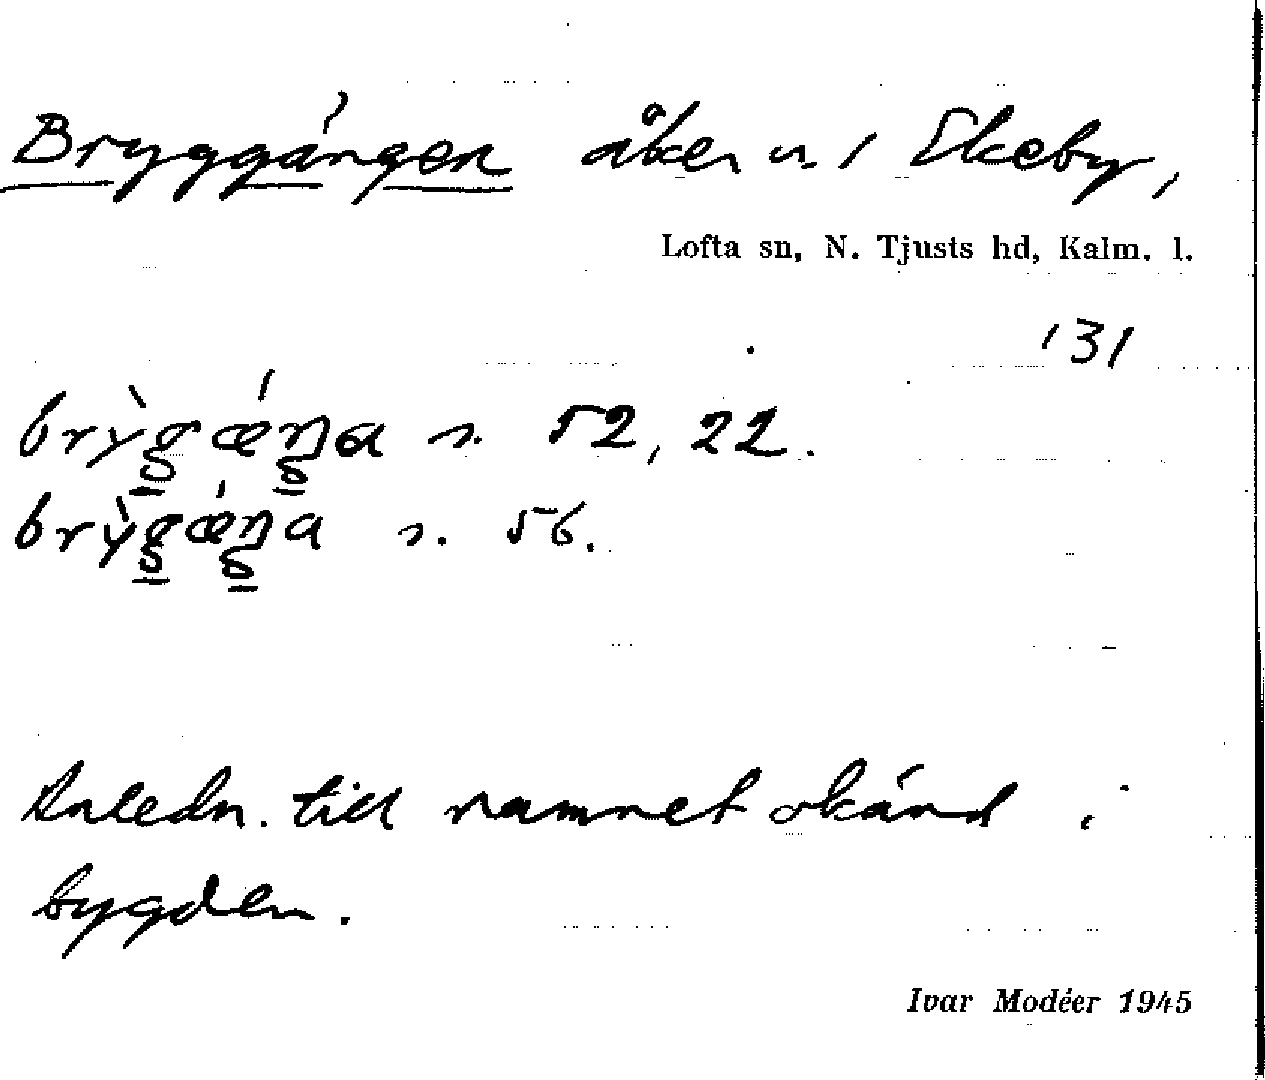 Bryggängen åker u. / Ekeby,
Lofta sn, N. Tjusts hd, Kalm. l.
131
bry̆gæŋa s. 52, 22.
brygæŋa s. 56.
Anledn. till namnet okänd i
bygden.
Ivar Modéer 1945